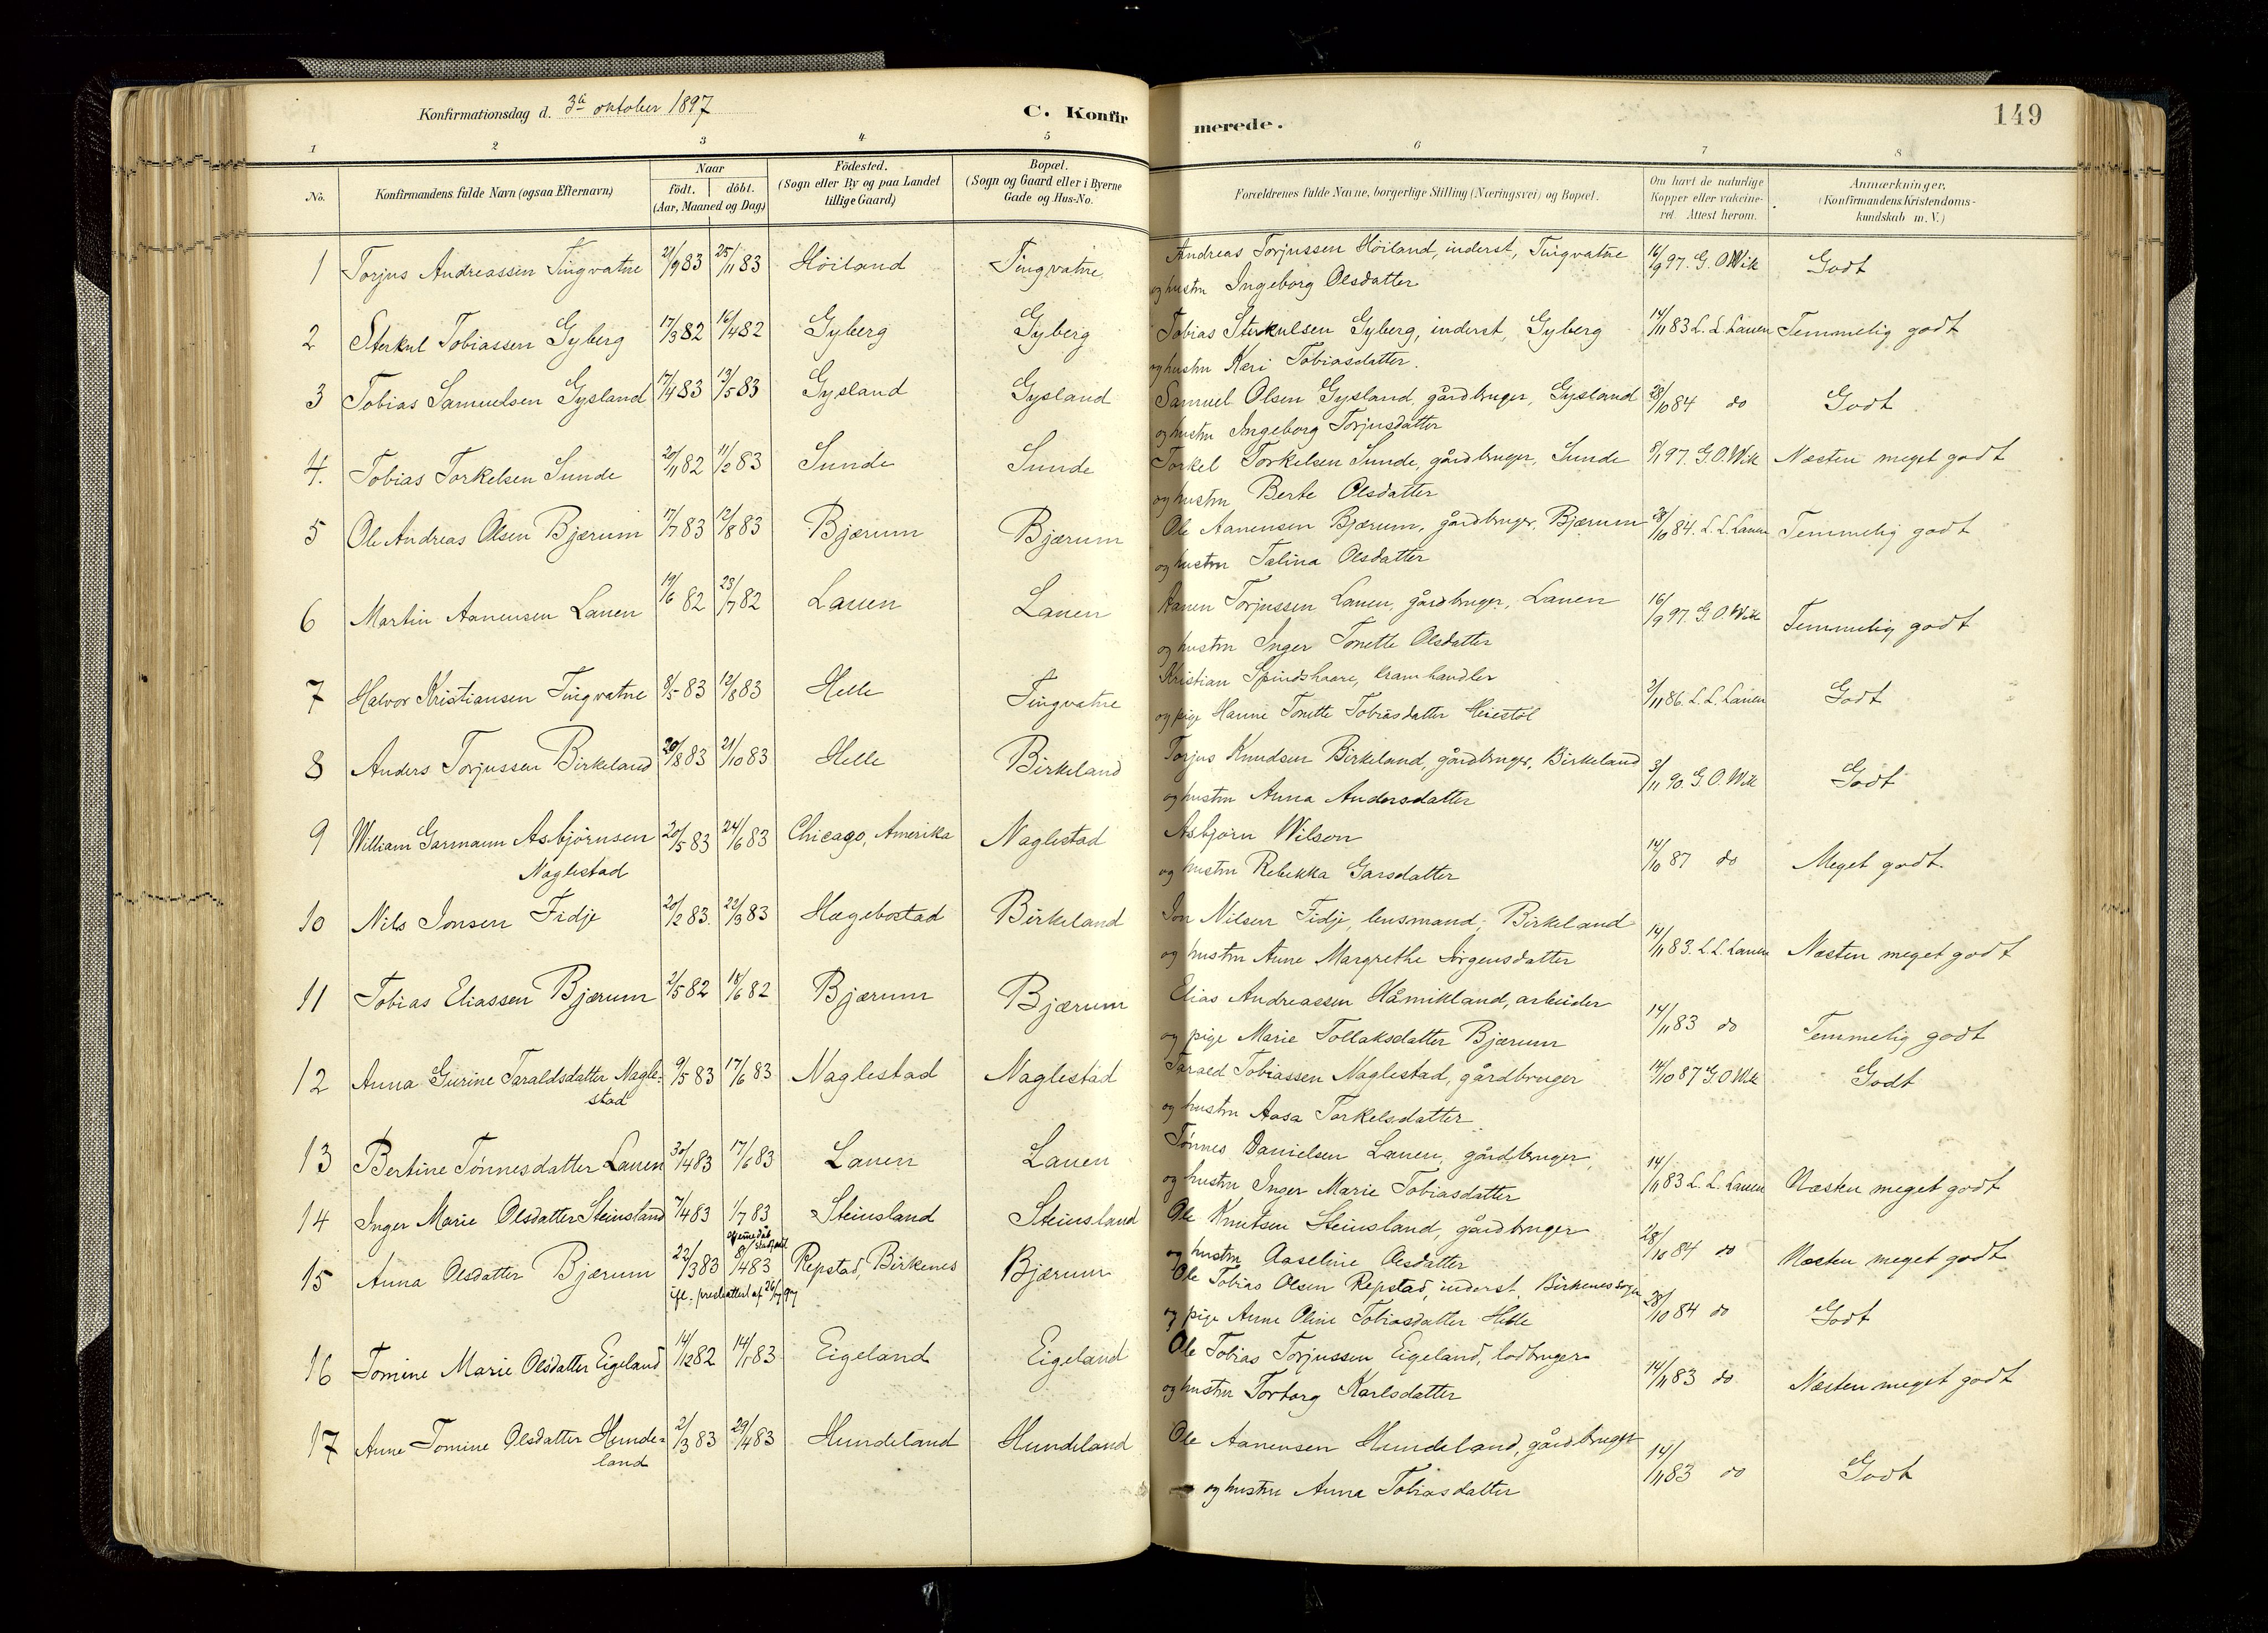 Konfirmationsdag d. 3de oktober 1897
C. Konfir
merede.
149
1 2 3 4 5 6 7 8
No.
Konfirmandens fulde Navn (ogsaa Efternavn)
Naar
födt. döbt.
(Aar, Maaned og Dag)
Födested.
(Sogn eller By og paa Landet
tillige Gaard)
Bopæl.
(Sogn og Gaard eller i Byerne
Gade og Hus-No.
Forældrenes fulde Navne, borgerlige Stilling (Næringsvei) og Bopæl.
Om havt de naturlige
Kopper eller vakcine-
ret. Attest herom.
Anmærkninger.
(Konfirmandens Kristendoms-
kundskab m. V.)
1 Torjus Andreassen Tingvatne 21/9 83 25/11 83 Höiland Tingvatne Andreas Torjussen Höiland, inderst, Tingvatne 16/9 97. G. O. Wik Godt
og hustru Ingeborg Olsdatter
2 Sterkul Tobiassen Gyberg 17/3 82 16/4 82 Gyberg Gyberg Tobias Sterkulsen Gyberg, inderst, Gyberg 14/11 83 L. L. Lauen Temmelig godt
og hustru Kari Tobiasdatter.
3 Tobias Samuelsen Gysland 17/4 83 13/5 83 Gysland Gysland Samuel Olsen Gysland, gårdbruger, Gysland 28/10 84 do Godt
og hustru Ingeborg Torjusdatter
4. Tobias Torkelsen Sunde 20/11 82 11/2 83 Sunde Sunde Torkel Torkelsen Sunde, gårdbruger, Sunde 8/1 97. G. O. Wik Næsten meget godt
og hustru Berte Olsdatter
5 Ole Andreas Olsen Bjærum 17/7 83 12/8 83 Bjærum Bjærum Ole Aanensen Bjærum, gårdbruger, Bjærum 28/10 84. L. L. Lauen Temmelig godt
og hustru Talina Olsdatter
6 Martin Aanensen Lauen 19/6 82 23/7 82 Lauen Lauen Aanen Torjussen Lauen, gårdbruger, Lauen 16/9 97. G. O. Wik Temmelig godt
og hustru Inger Tonette Olsdatter
7 Halvor Kristiansen Tingvatne 8/5 83 12/8 83 Helle Tingvatne Kristian Spindshaare, kramhandler 2/11 86. L. L. Lauen Godt
og pige Hanne Tonette Tobiasdatter Heiestöl
8 Anders Torjussen Birkeland 20/8 83 21/10 83 Helle Birkeland Torjus Knudsen Birkeland, gårdbruger, Birkeland 3/11 90. G. O. Wik Godt
og hustru Anna Andersdatter
9 William Garmann Asbjörnsen 20/5 83 24/6 83 Chicago, Amerika Naglestad Asbjörn Wilson 14/10 87 do Meget godt.
Naglestad og hustru Rebekka Garsdatter
10 Nils Jonsen Fidje 20/2 83. 22/3 83 Hægebostad Birkeland Jon Nilsen Fidje, lensmand, Birkeland 14/11 83. L. L. Lauen Næsten meget godt
og hustru Anne Margrethe Jörgensdatter
11 Tobias Eliassen Bjærum 2/5 82 18/6 82 Bjærum Bjærum Elias Andreassen Håmikland, arbeider 14/11 83 do Temmelig godt
og pige Marie Tollaksdatter Bjærum
12 Anna Gurine Taraldsdatter Nagle- 9/5 83 17/6 83 Naglestad Naglestad Tarald Tobiassen Naglestad, gårdbruger 14/10 87 G. O. Wik Godt
stad og hustru Aasa Torkelsdatter
13 Bertine Tönnesdatter Lauen 30/4 83 17/6 83 Lauen Lauen Tönnes Danielsen Lauen, gårdbruger, 14/11 83 L. L. Lauen Næsten meget godt
og hustru Inger Marie Tobiasdatter
14 Inger Marie Olsdatter Steinsland 7/4 83 1/7 83 Steinsland Steinsland Ole Knutsen Steinsland, gårdbruger 28/10 84 do Næsten meget godt
og hustru Aaseline Olsdatter
15 Anna Olsdatter Bjærum 22/3 83 hjemedåb 8/4 83 Repstad, Birkenes Bjærum Ole Tobias Olsen Repstad, inderst, Birkenes sogn 28/10 84 do Godt
ifl. presteattest af 26/7 97 og pige Anne Oline Tobiasdatter Helle
16 Tomine Marie Olsdatter Eigeland 14/12 82 14/1 83 Eigeland Eigeland Ole Tobias Torjussen Eigeland, lodbruger 14/11 83 do Næsten meget godt
og hustru Torborg Karlsdatter
17 Anne Tomine Olsdatter Hunde- 2/3 83 29/4 83 Hundeland Hundeland Ole Aanensen Hundeland, gårdbruger 14/11 83 do Godt
land og hustru Anna Tobiasdatter